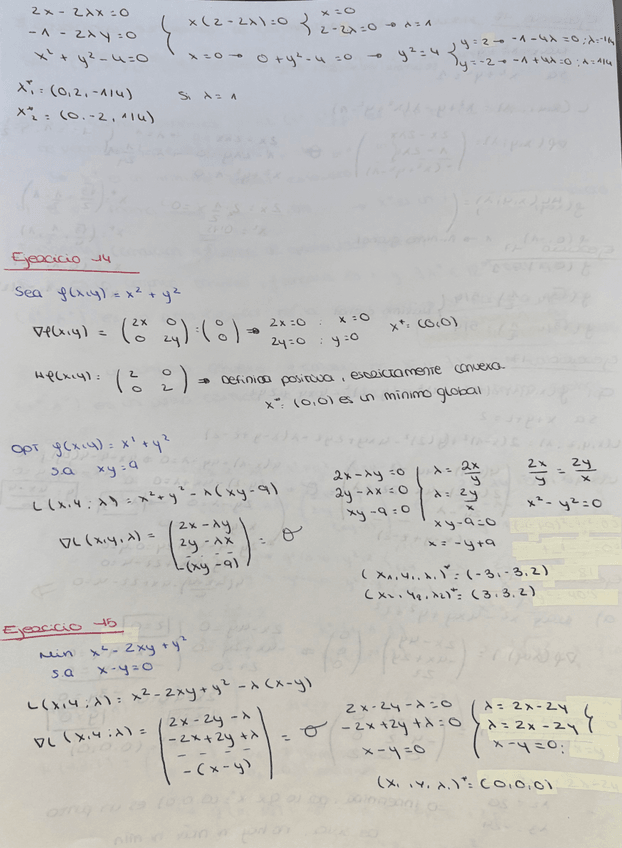 2x - 2λx = 0
-1 - 2λy = 0
x² + y² - 4 = 0
x(2 - 2λ) = 0 { x = 0
2 - 2λ = 0 → λ = 1
x = 0 → 0 + y² - 4 = 0 → y² = 4 { y = 2 → -1 - 4λ = 0 ; λ = -1/4
y = -2 → -1 + 4λ = 0 ; λ = 1/4
x₁* = (0, 2, -1/4)   Si λ = 1
x₂* = (0, -2, 1/4)
Ejercicio 14
Sea f(x,y) = x² + y²
∇f(x,y) = (2x 0 / 0 2y) = (0 / 0) ⇒ 2x = 0 ; x = 0
2y = 0 ; y = 0
x* = (0,0)
Hf(x,y) = (2 0 / 0 2) ⇒ Definida positiva, estrictamente convexa.
x* = (0,0) es un mínimo global
Opt f(x,y) = x² + y²
s.a xy = 9
L(x,y ; λ) = x² + y² - λ(xy - 9)
∇L(x,y,λ) = (2x - λy / 2y - λx / -(xy - 9)) = θ
2x - λy = 0
2y - λx = 0
xy - 9 = 0
λ = 2x/y
λ = 2y/x
xy - 9 = 0
x = -y + 9
2x/y = 2y/x
x² - y² = 0
(x₁, y₁, λ₁)* = (-3, -3, 2)
(x₂, y₂, λ₂)* = (3, 3, 2)
Ejercicio 15
Min x² - 2xy + y²
s.a x - y = 0
L(x,y ; λ) = x² - 2xy + y² - λ(x - y)
∇L(x,y ; λ) = (2x - 2y - λ / -2x + 2y + λ / -(x - y)) = θ
2x - 2y - λ = 0
-2x + 2y + λ = 0
x - y = 0
λ = 2x - 2y
λ = 2x - 2y
x - y = 0;
(x, y, λ)* = (0, 0, 0)